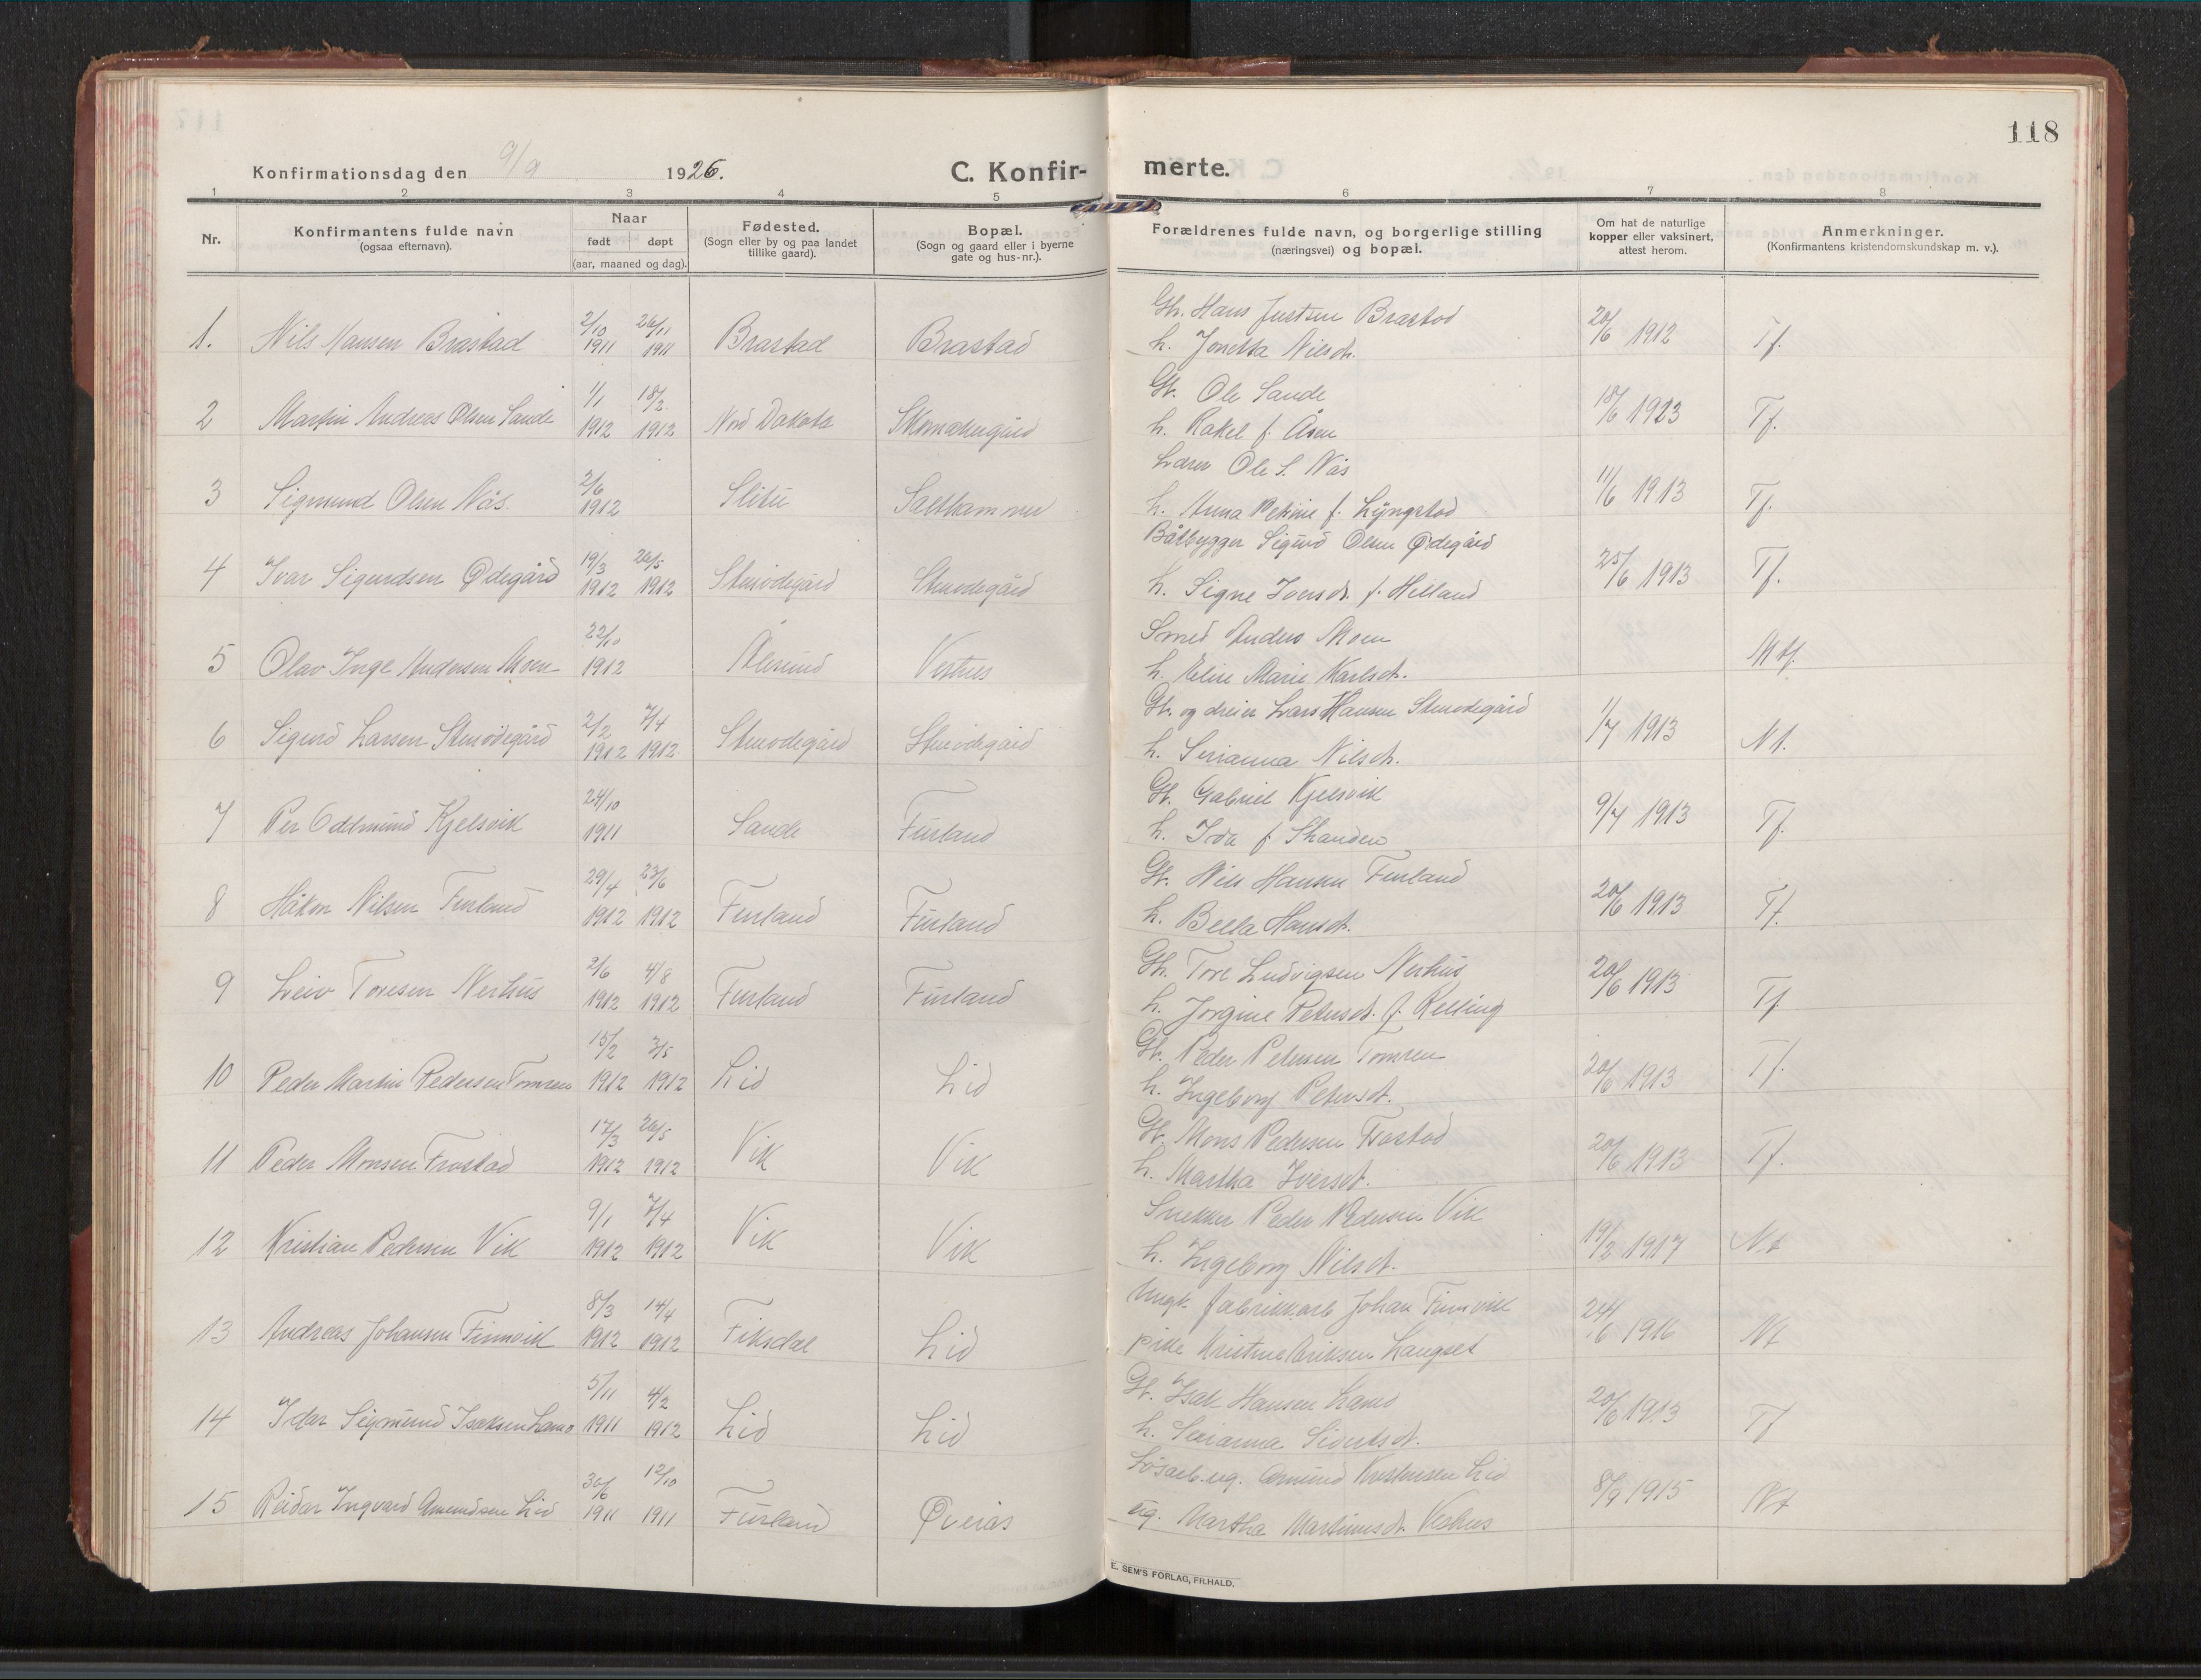 118
Konfirmationsdag den 9/9 1926.
C. Konfir-
merte.
1 2 3 4 5 6 7 8
Nr.
Konfirmantens fulde navn
(ogsaa efternavn).
Naar
født døpt
(aar, maaned og dag).
Fødested.
(Sogn eller by og paa landet
tillike gaard).
Bopæl.
(Sogn og gaard eller i byerne
gate og hus-nr.).
Forældrenes fulde navn, og borgerlige stilling
(næringsvei) og bopæl.
Om hat de naturlige
kopper eller vaksinert,
attest herom.
Anmerkninger.
(Konfirmantens kristendomskundskap m. v.).
Gb. Hans Justsen Brastad
1. Nils Hansen Brastad 2/10 1911 26/11 1911 Brastad Brastad 20/6 1912 Tf.
h. Jonetta Nilsdt.
Gb. Ole Sande
2 Martin Andreas Olsen Sande 1/1 1912 18/2 1912 Nord Dakota Skomakergård 18/6 1923 Tf.
h. Rakel f. Åsen
Lærer Ole S. Nås
3 Sigmund Olsen Nås. 2/6 1912 Salthammer 11/6 1913 Tf.
h. Anna Petrine f. Lyngstad
Båtbygger Sigurd Olsen Ødegård
4 Ivar Sigurdsen Ødegård 19/3 1912 26/5 1912 Stenødegård Stenødegård 25/6 1913 Tf.
h. Signe Iversdt. f. Helland
Smed Anders Moen
5 Olav Inge Andersen Moen 22/10 1912 Ålesund Vestnes Mtf.
h. Eline Marie Karlsdt.
Gb. og dreier Lars Hansen Stenødegård
6 Sigurd Larsen Stenødegård 2/2 1912 7/4 1912 Stenødegård Stenødegård 1/7 1913 Nt.
h. Serianna Nilsdt.
Gb. Gabriel Kjelsvik
7 Per Oddmund Kjelsvik 24/10 1911 Sande Furland 9/7 1913 Tf.
h. Ida f. Skanden
Gb. Nils Hansen Furland
8 Håkon Nilsen Furland 29/4 1912 23/6 1912 Furland Furland 20/6 1913 Tf.
h. Bella Hansdt.
Gb. Tore Ludvigsen Nerhus
9 Leiv Toresen Nerhus 2/6 1912 4/8 1912 Furland Furland 20/6 1913 Tf
h. Jorgine Petersdt. f. Relling
Gb. Peder Petersen Tomren
10 Peder Martin Pedersen Tomren 15/2 1912 3/5 1912 Lid Lid 20/6 1913 Tf.
h. Ingeborg Petersdt.
Gb. Mons Pedersen Frostad
11 Peder Monsen Frostad 17/3 1912 26/5 1912 Vik Vik 20/6 1913 Tf.
h. Martha Iversdt.
Snekker Peder Pedersen Vik
12 Kristian Pedersen Vik 9/1 1912 7/4 1912 Vik Vik 19/3 1917 Nt
h. Ingeborg Nilsdt.
Ungk. fabrikkarb Johan Finnvik
13 Andreas Johansen Finnvik 8/3 1912 14/4 1912 Fiksdal Lid 24/6 1916 Nt
pike Kristine Eriksen Langset
Gb. Isak Hansen Lamo
14 Idar Sigmund Isaksen Lamo 5/11 1911 4/2 1912 Lid Lid 20/6 1913 Tf
h. Serianna Sivertsdt.
Løsarb. ug. Amund Kristensen Lid
15 Reidar Ingvard Amundsen Lid 30/6 1911 12/10 1911 Furland Øverås 8/9 1915 Nt
ug. Martha Martinusdt. Vestnes
E. SEM'S FORLAG, FR.HALD.